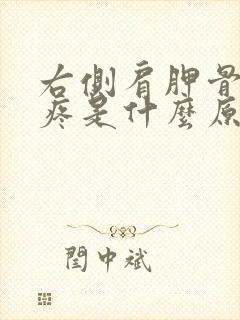 右側肩胛骨
疼是什麼原
閆中斌